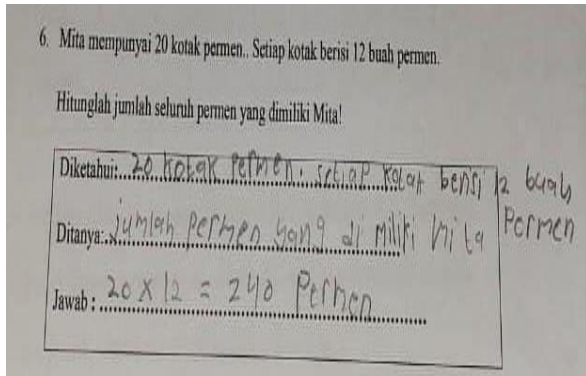 6. Mita mempunyai 20 kotak permen.. Setiap kotak berisi 12 buah permen.
Hitunglah jumlah seluruh permen yang dimiliki Mita!
Diketahui:..20 kotak Permen. setiap kotak berisi 12 buah
Permen
Ditanya:..jumlah permen yang di miliki mita
Jawab : ..20 x 12 = 240 Permen